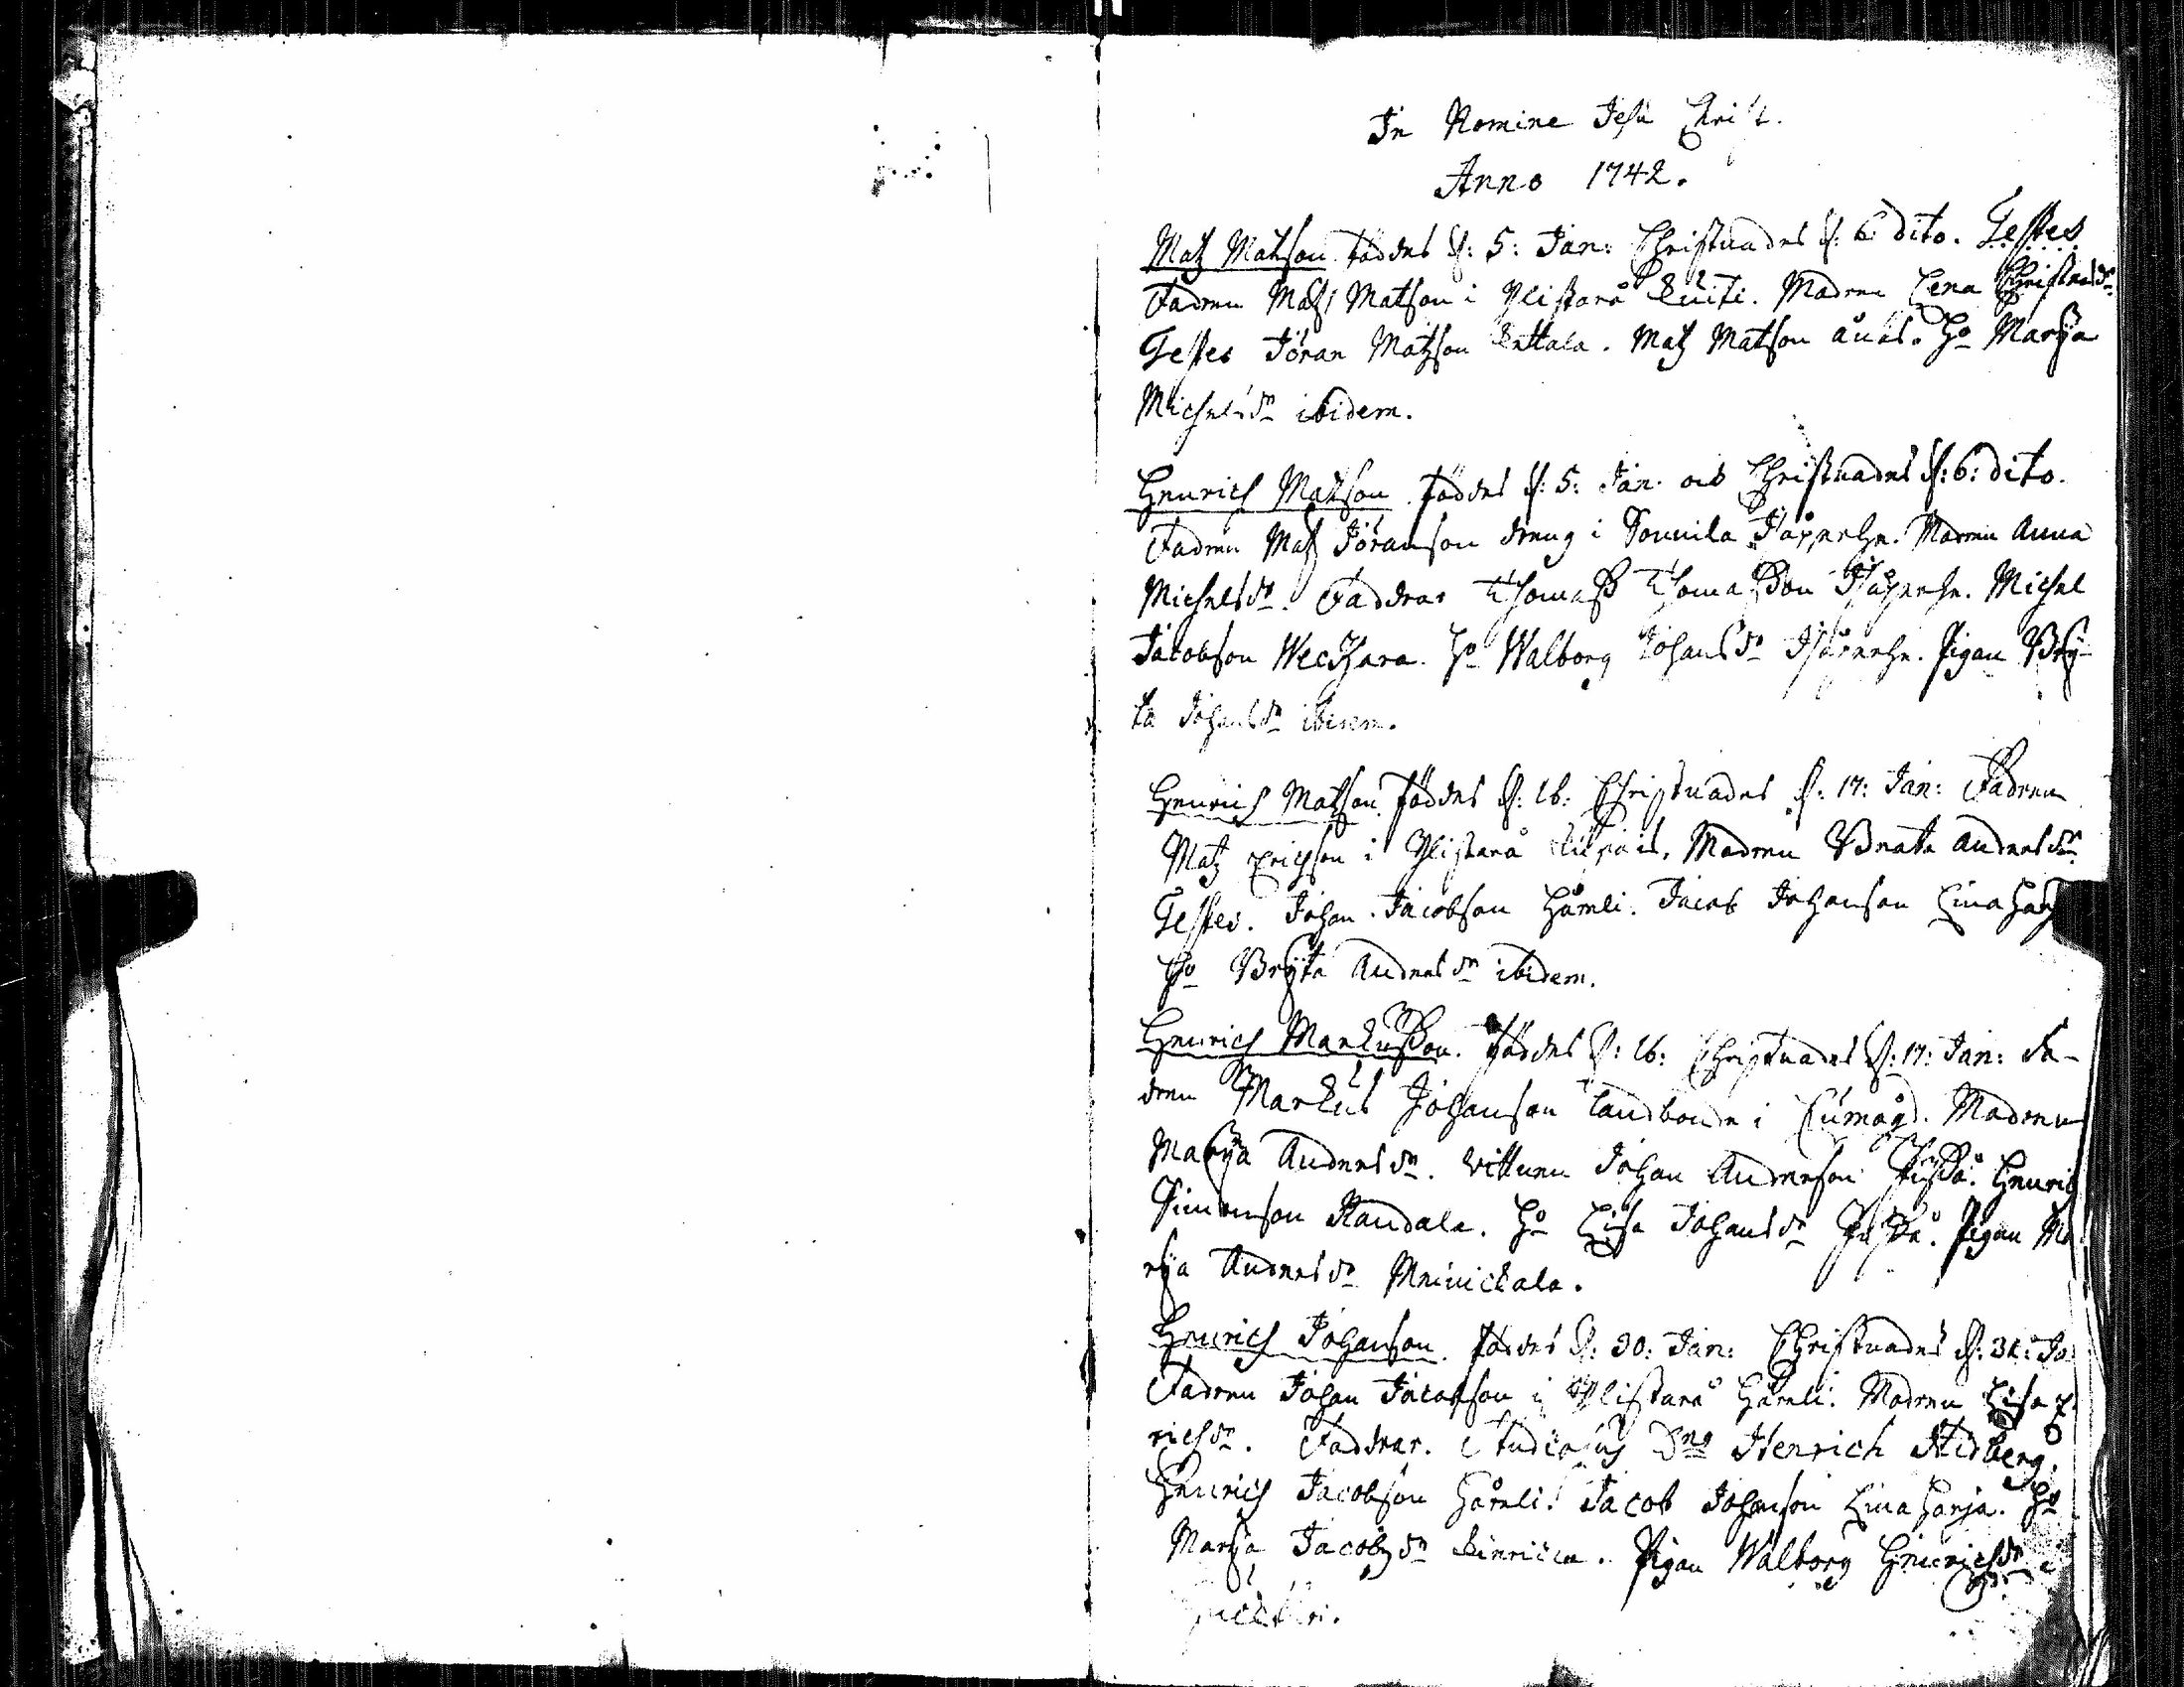 In Nomine Jesu Christ.
Anno 1742.
Matz Matzson föddes d: 5: Jan: Christnades d: 6 dito. Testes
Fadren Matz Matson i Ylistarå Madren Lena
Testes Jöran Matzson Anttala. Matz Matson H:o Marÿa
Michelsdr ibidem.
Henrich Matzson föddes d: 5: Jan. och Christnades d: 6: dito.
Fadren Matz Jöranson dreng i Sonnila Madren Anna
Michelsdr. Faddrar Thomaß Thomaßon Michel
Jacobson H:o Walborg Johansdr Pigan Brÿ-
ta Johansdr ibidem.
Henrich Matson föddes d: 16: Christnades d: 17: Jan: Fadren
Matz Erichson i Ylistarå Madren Beata Andersdr
Testes. Johan Jacobson Hårnli. Jacob Johanson
H:o Brÿta Andersdr ibidem.
Henrich Markußon. föddes d: 16: Christnades d: 17: Jan: Fa-
dren Markus Johanson landbonde i Madren
Marÿa Andersdr. Vittnen Johan Anderson Henrich
Simonson Randala. H:o Lisa Johansdr Pigan Ma
rÿa Andersdr Meinickala.
Henrich Johanson. föddes d: 30: Jan: Christnades d: 31: Ja
Fadren Johan Jacobson i Ylistarå Hårnli. Madren Lisa E
richsdr. Faddrar. Studiosus Dns Henrich Stidberg.
Henrich Jacobson Hårnli. Jacob Johanson Linaharja. H:o
Marÿa Jacobsdr Pigan Walborg Henrichsdr i